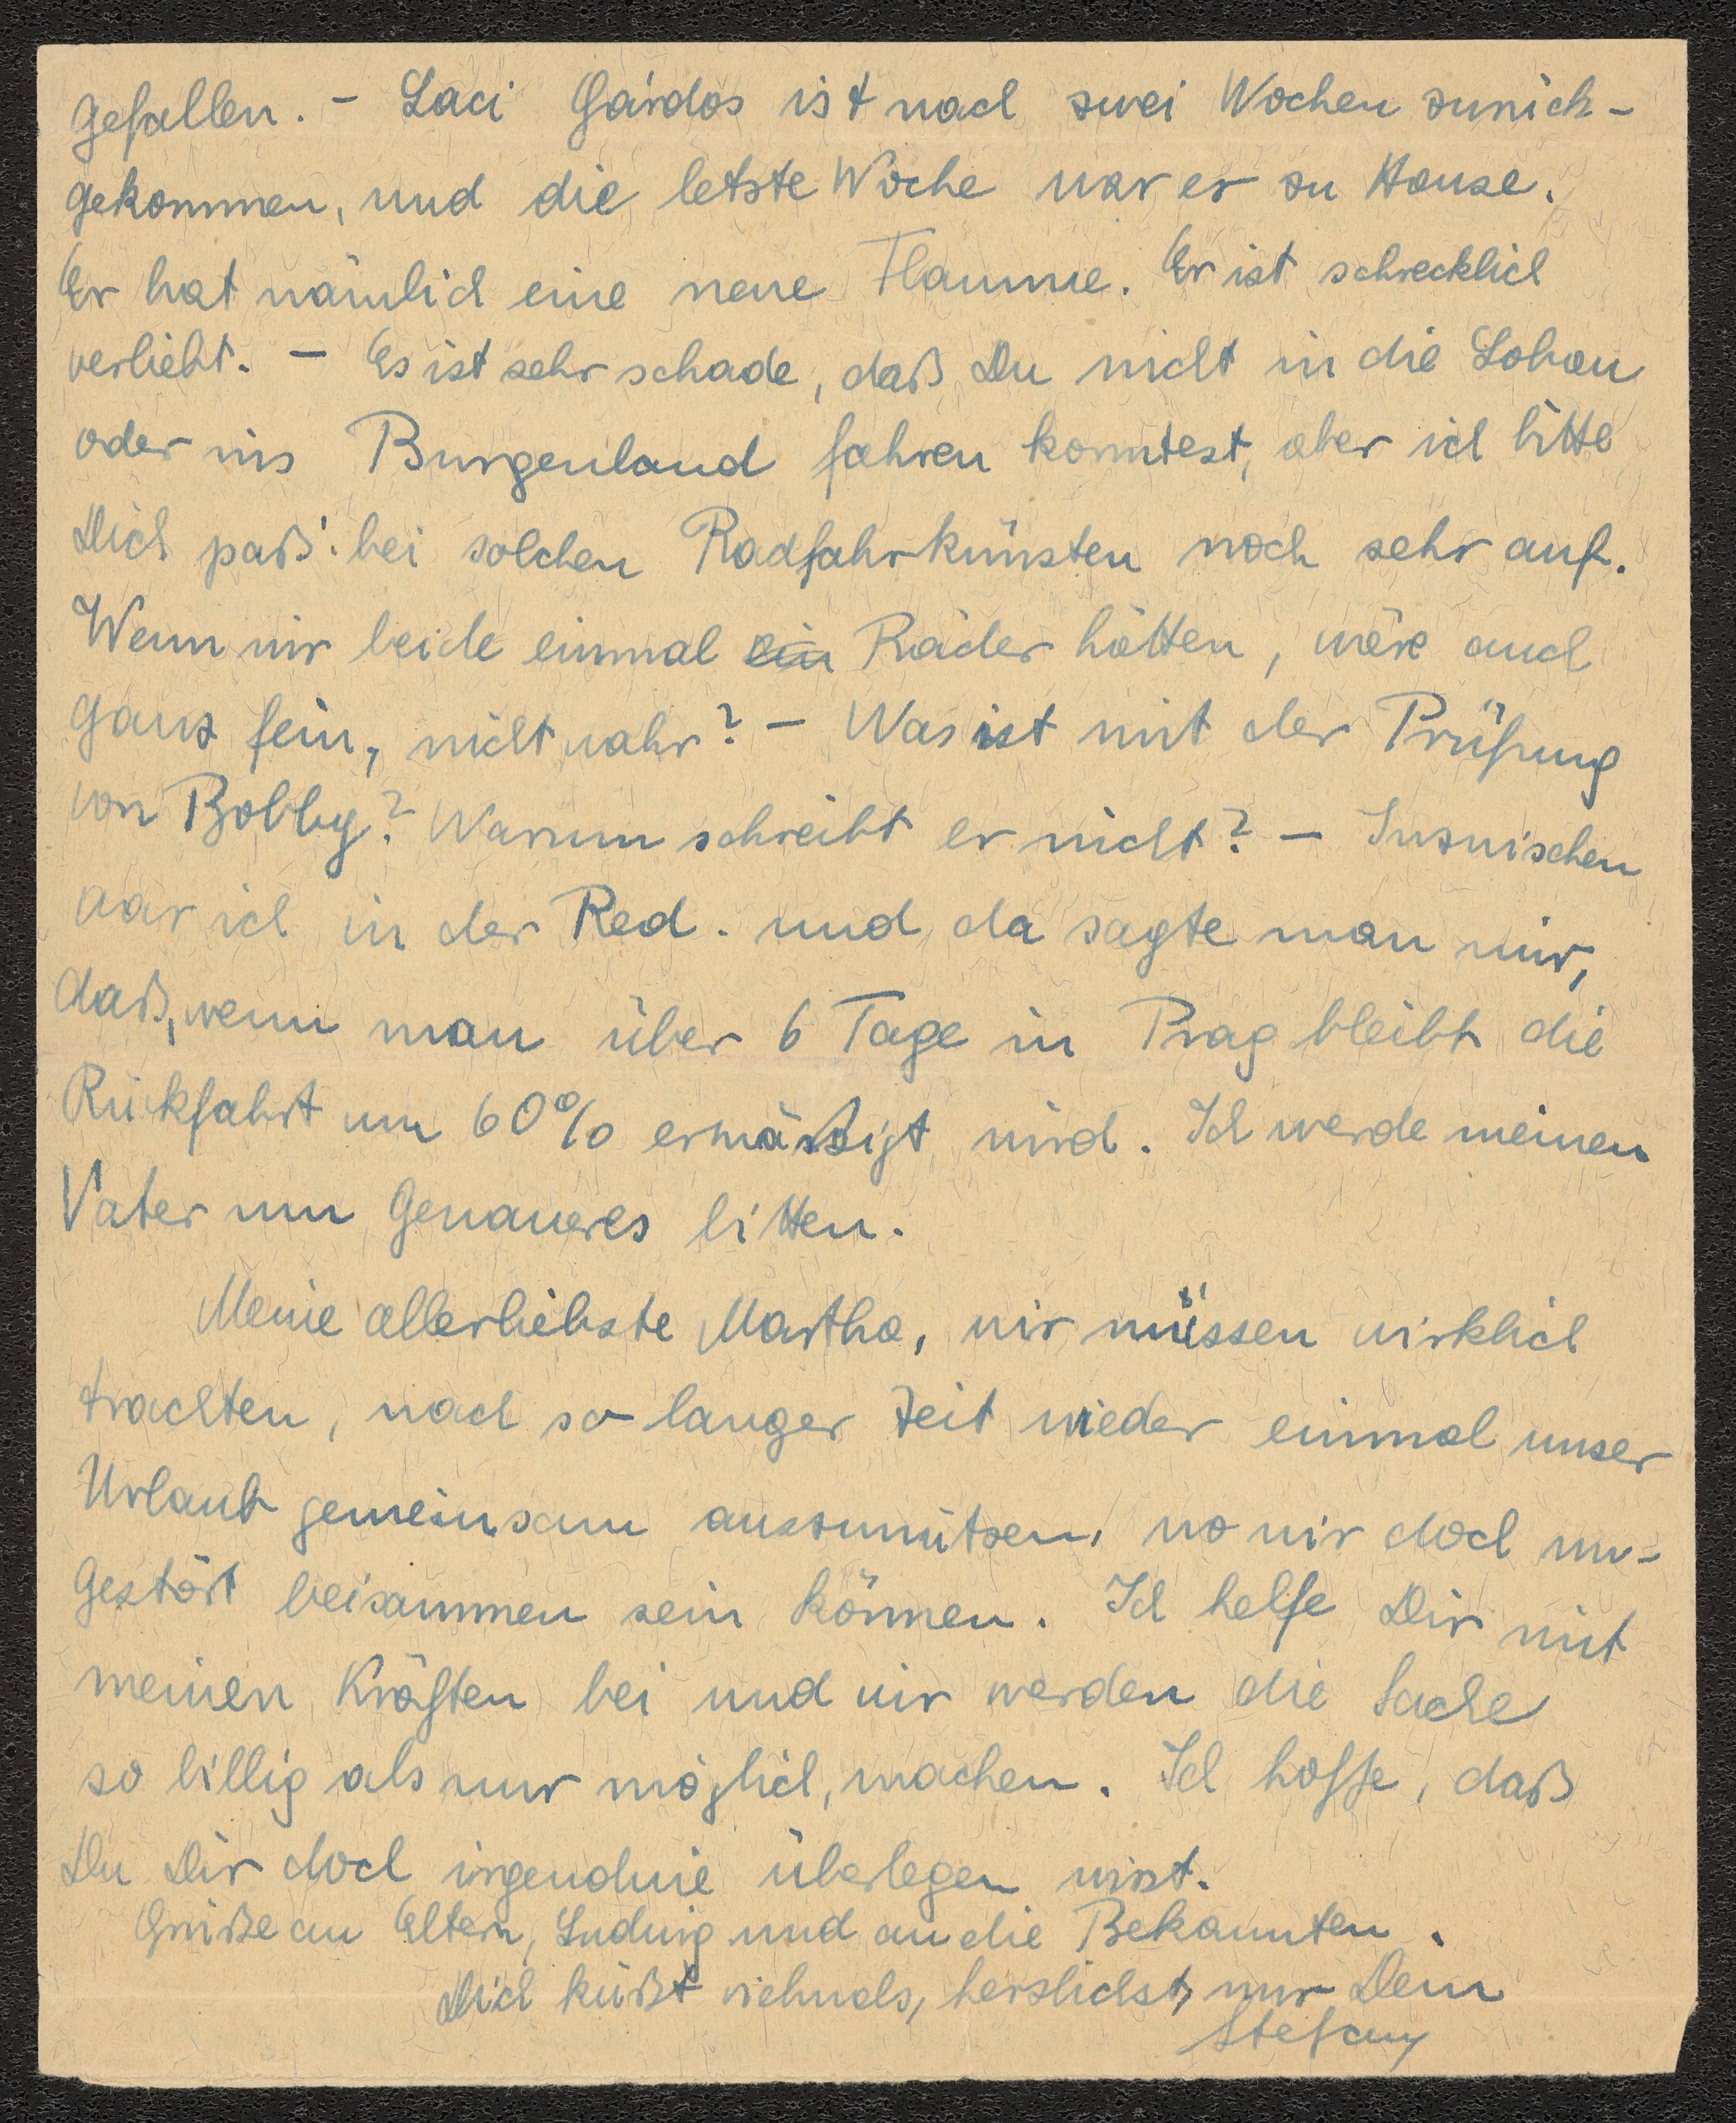 gefallen. - Laci Gárdos ist nach zwei Wochen zurück-
gekommen, und die letzte Woche war er zu Hause.
Er hat nämlich eine neue Flamme. Er ist schrecklich
verliebt. - Es ist sehr schade, daß Du nicht in die Lobau
oder ins Burgenland fahren konntest, aber ich bitte
Dich paß' bei solchen Radfahrkünsten noch sehr auf.
Wenn wir beide einmal ein Räder hätten, wäre auch
ganz fein, nicht wahr? - Was ist mit der Prüfung
von Bobby? Warum schreibt er nicht? - Inzwischen
war ich in der Red. und da sagte man mir,
daß, wenn man über 6 Tage in Prag bleibt die
Rückfahrt um 60% ermäßigt wird. Ich werde meinen
Vater um Genaueres bitten.
Meine allerliebste Martha, wir müssen wirklich
trachten, nach so langer Zeit wieder einmal unser
Urlaub gemeinsam auszunützen, wo wir doch un-
gestört beisammen sein können. Ich helfe Dir mit
meinen Kräften bei und wir werden die Sache
so billig als nur möglich, machen. Ich hoffe, daß
Du Dir doch irgendwie überlegen wirst.
Grüße an Eltern, Ludwig und an die Bekannten.
Dich küßt vielmals, herzlichst, nur Dein
Stefan